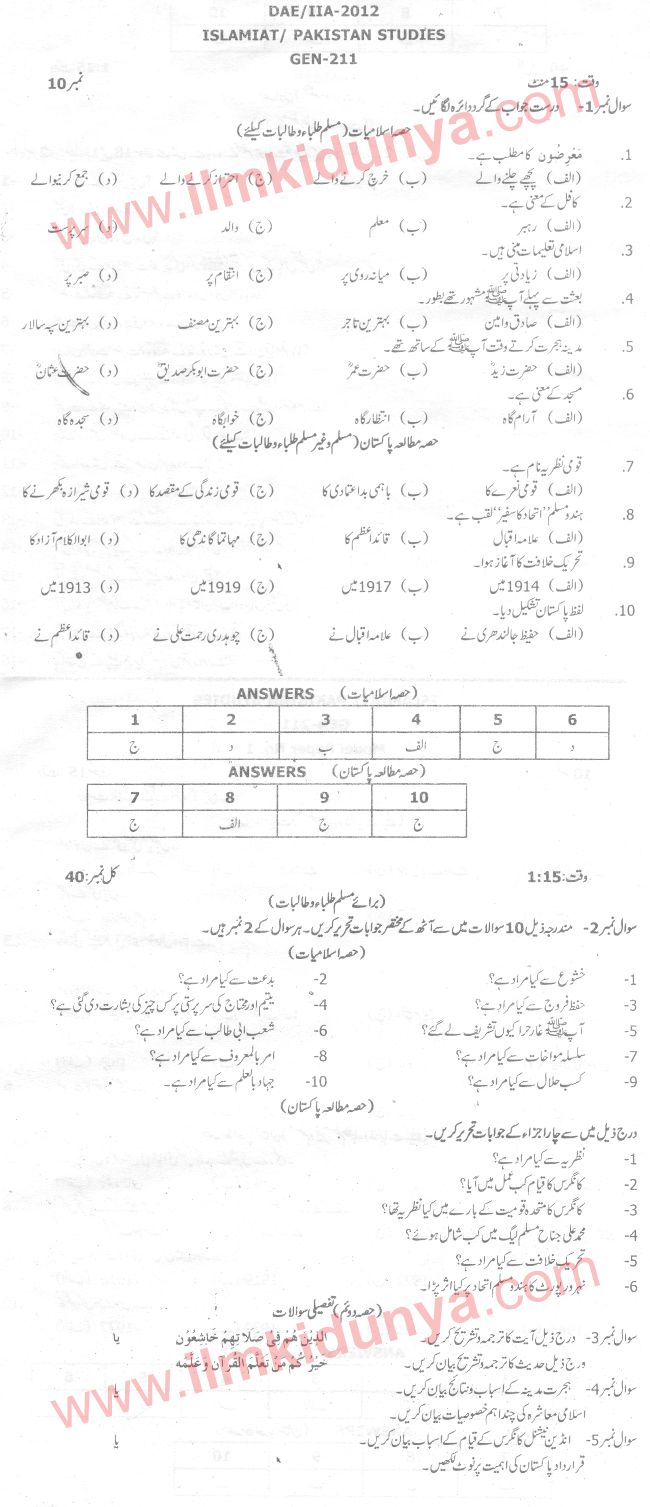 DAE/IIA-2012
ISLAMIAT/ PAKISTAN STUDIES
GEN-211
وقت: 15 منٹ نمبر 10
سوال نمبر 1- درست جواب کے گرد دائرہ لگائیں۔
حصہ اسلامیات (مسلم طلباء و طالبات کیلئے)
1. مَعْرِضُون کا مطلب ہے۔
(الف) پیچھے چلنے والے (ب) خرچ کرنے والے (ج) احتراز کرنے والے (د) جمع کرنیوالے
2. کافل کے معنی ہے۔
(الف) رہبر (ب) معلم (ج) والد (د) سرپرست
3. اسلامی تعلیمات مبنی ہیں۔
(الف) زیادتی پر (ب) میانہ روی پر (ج) انتقام پر (د) صبر پر
4. بعثت سے پہلے آپ ﷺ مشہور تھے بطور۔
(الف) صادق و امین (ب) بہترین تاجر (ج) بہترین مصنف (د) بہترین سپہ سالار
5. مدینہ ہجرت کرتے وقت آپ ﷺ کے ساتھ تھے۔
(الف) حضرت زیدؓ (ب) حضرت عمرؓ (ج) حضرت ابوبکر صدیقؓ (د) حضرت عثمانؓ
6. مسجد کے معنی ہے۔
(الف) آرام گاہ (ب) انتظار گاہ (ج) خوابگاہ (د) سجدہ گاہ
حصہ مطالعہ پاکستان (مسلم و غیر مسلم طلباء و طالبات کیلئے)
7. قومی نظریہ نام ہے۔
(الف) قومی نعرے کا (ب) باہمی بداعتمادی کا (ج) قومی زندگی کے مقصد کا (د) قومی شیرازہ بکھرنے کا
8. ہندو مسلم "اتحاد کا سفیر" لقب ہے۔
(الف) علامہ اقبال (ب) قائداعظم کا (ج) مہاتما گاندھی کا (د) ابوالکلام آزاد کا
9. تحریک خلافت کا آغاز ہوا۔
(الف) 1914 میں (ب) 1917 میں (ج) 1919 میں (د) 1913 میں
10. لفظ پاکستان تشکیل دیا۔
(الف) حفیظ جالندھری نے (ب) علامہ اقبال نے (ج) چوہدری رحمت علی نے (د) قائداعظم نے
ANSWERS (حصہ اسلامیات)
1 2 3 4 5 6
ج د ب الف ج د
ANSWERS (حصہ مطالعہ پاکستان)
7 8 9 10
ج الف ج ج
وقت: 1:15 کل نمبر: 40
(برائے مسلم طلباء و طالبات)
سوال نمبر 2- مندرجہ ذیل 10 سوالات میں سے آٹھ کے مختصر جوابات تحریر کریں۔ ہر سوال کے 2 نمبر ہیں۔
(حصہ اسلامیات)
1- خشوع سے کیا مراد ہے؟ 2- بدعت سے کیا مراد ہے؟
3- حفظ فروج سے کیا مراد ہے؟ 4- یتیم اور محتاج کی سرپرستی پر کس چیز کی بشارت دی گئی ہے؟
5- آپ ﷺ غار حرا کیوں تشریف لے گئے؟ 6- شعب ابی طالب سے کیا مراد ہے؟
7- سلسلہ مواخات سے کیا مراد ہے؟ 8- امر بالمعروف سے کیا مراد ہے؟
9- کسب حلال سے کیا مراد ہے؟ 10- جہاد بالعلم سے کیا مراد ہے۔
(حصہ مطالعہ پاکستان)
درج ذیل میں سے چار اجزاء کے جوابات تحریر کریں۔
1- نظریہ سے کیا مراد ہے؟
2- کانگرس کا قیام کب عمل میں آیا؟
3- کانگرس کا متحدہ قومیت کے بارے میں کیا نظریہ تھا؟
4- محمد علی جناح مسلم لیگ میں کب شامل ہوئے؟
5- تحریک خلافت سے کیا مراد ہے؟
6- نہرو رپورٹ کا ہندو مسلم اتحاد پر کیا اثر پڑا۔
(حصہ دوئم) تفصیلی سوالات
سوال نمبر 3- درج ذیل آیت کا ترجمہ و تشریح کریں۔ الَّذِيْنَ هُمْ فِيْ صَلَاتِهِمْ خَاشِعُوْن یا
درج ذیل حدیث کا ترجمہ و تشریح بیان کریں۔ خَيْرُ كُمْ مَنْ تَعَلَّمَ الْقُرْآنَ وَعَلَّمَه
سوال نمبر 4- ہجرت مدینہ کے اسباب و نتائج بیان کریں۔ یا
اسلامی معاشرہ کی چند اہم خصوصیات بیان کریں۔
سوال نمبر 5- انڈین نیشنل کانگرس کے قیام کے اسباب بیان کریں۔ یا
قرارداد پاکستان کی اہمیت پر نوٹ لکھیں۔
www.ilmkidunya.com
www.ilmkidunya.com
www.ilmkidunya.com